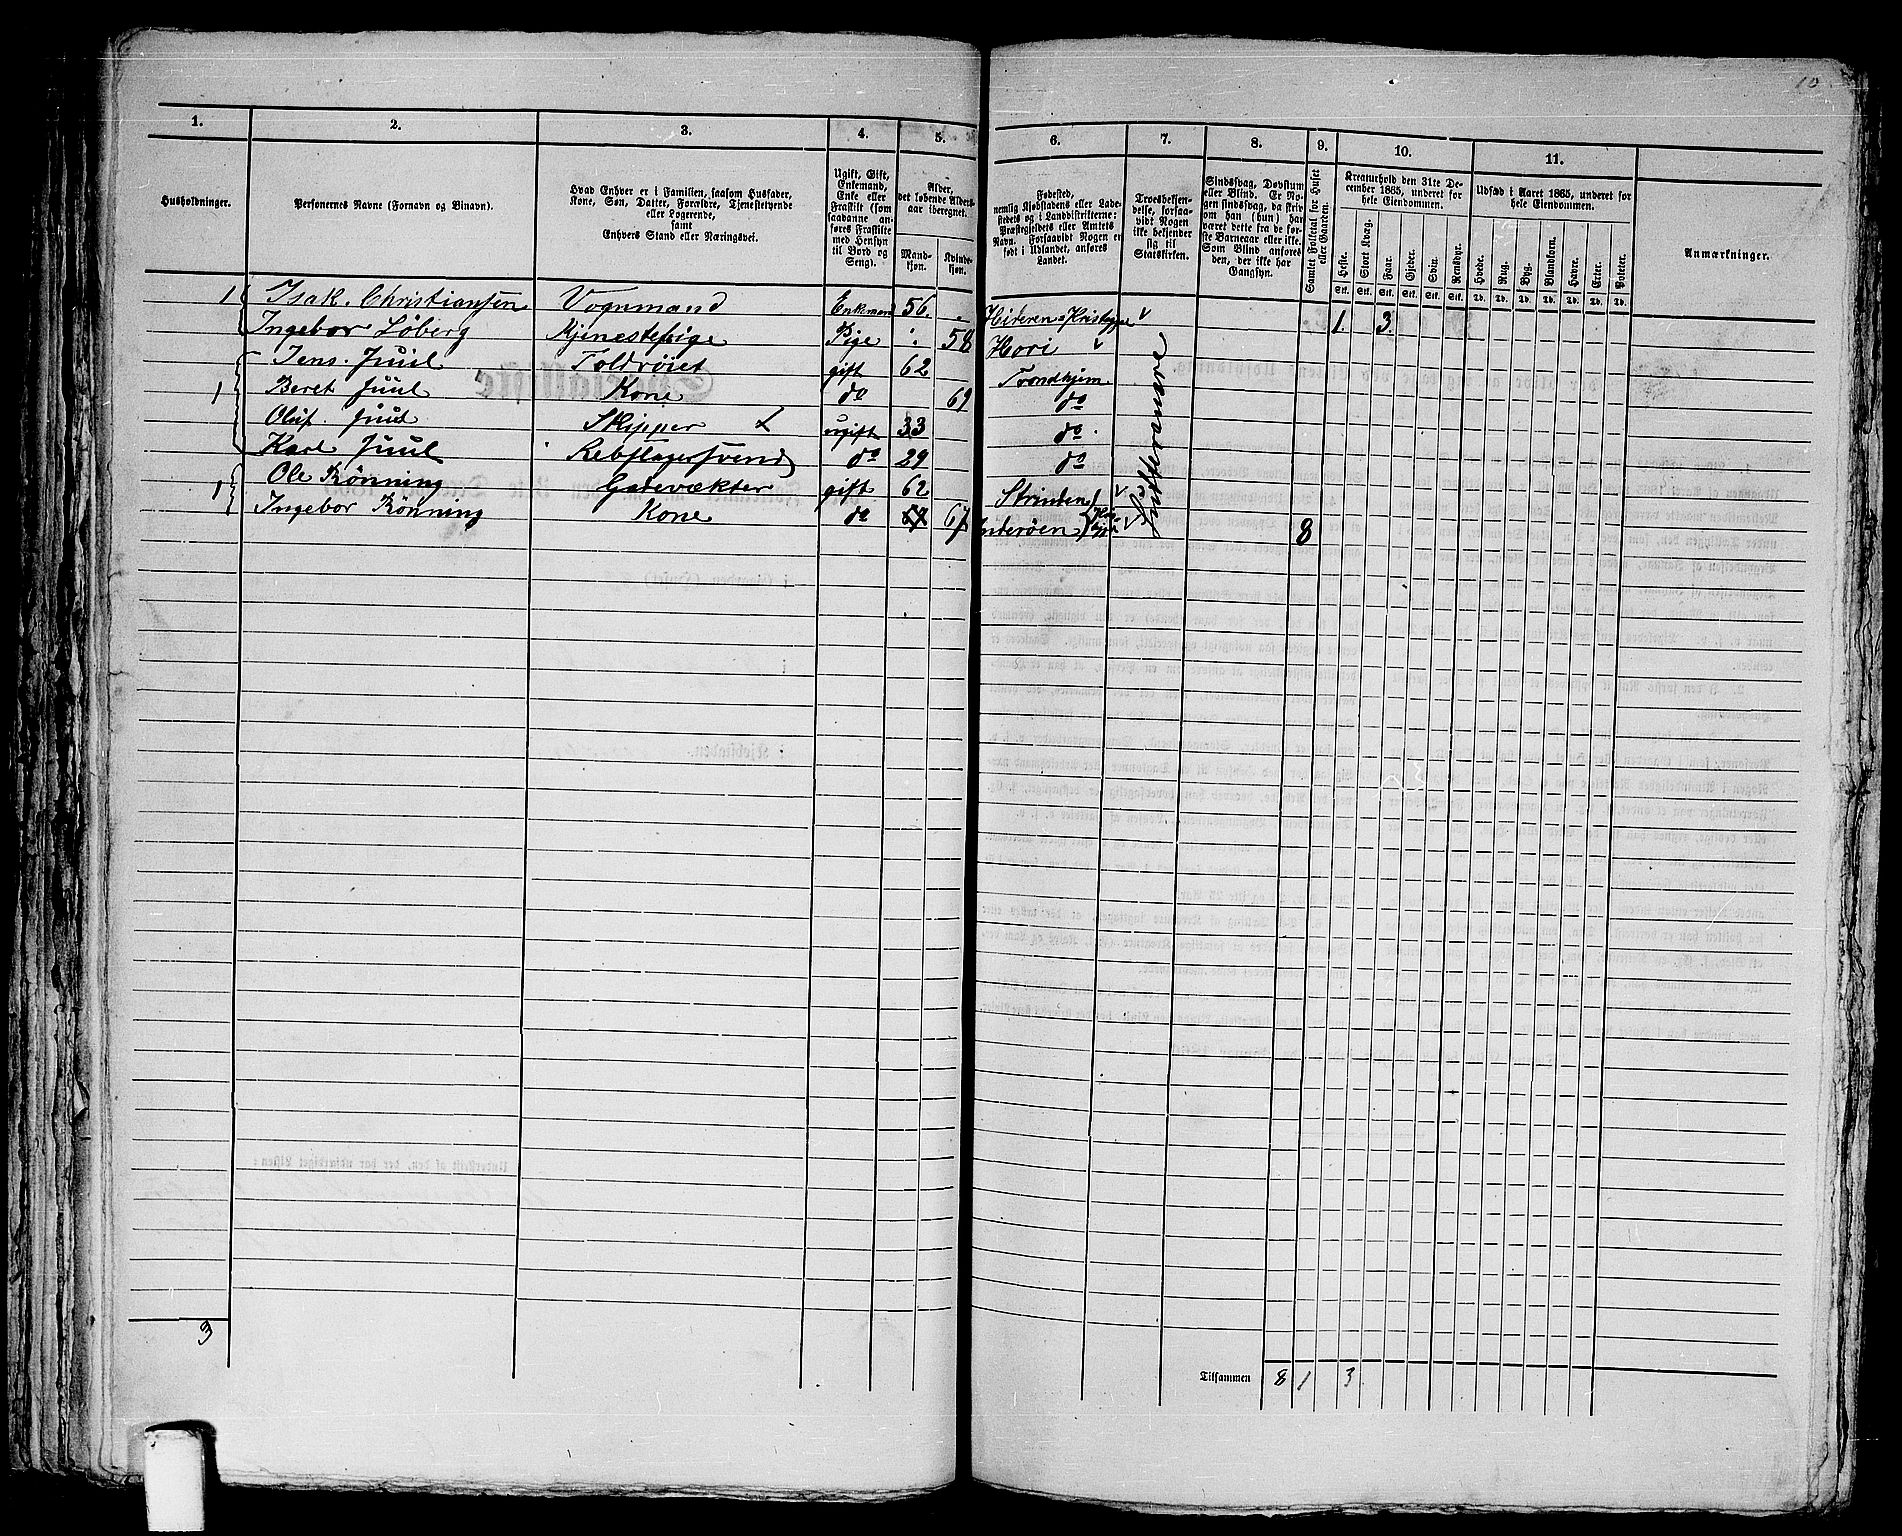 10
1. 2. 3. 4. 5. 6. 7. 8. 9. 10. 11.
Husholdninger.
Personernes Navne (Fornavn og Binavn).
Hvad Enhver er i Familien, saasom Husfader,
Kone, Søn, Datter, Forældre, Tjenestetyende
eller Logerende,
samt
Enhvers Stand eller Næringsvei.
Ugift, Gift,
Enkemand,
Enke eller
Fraskilt (som
saadanne an-
føres Fraskilte
med Hensyn
til Bord og
Seng).
Alder,
det løbende Alders-
aar iberegnet.
Mand-
kjøn.
Kvinde-
kjøn.
Fødested,
nemlig Kjøbstadens eller Lade-
stedets og i Landdistrikterne:
Præstegjeldets eller Amtets
Navn. Forsaavidt Nogen er
født i Udlandet, anføres
Landet.
Troesbekjen-
delse, forsaa-
vidt Nogen
ikke bekjender
sig til
Statskirken.
Sindssvag, Døvstum
eller Blind. Er No-
gen sindssvag, da skriv
om han (hun) har
været dette fra de før-
ste Barneaar eller ikke.
Som Blind anføres
den, der ikke har
Gangsyn.
Samlet Folketal for Huset
eller Gaarden.
Kreaturhold den 31te De-
cember 1865, underet for
hele Eiendommen.
Heste. Stort Kvæg. Faar. Gjeder. Svin. Rensdyr.
Stk. Stk. Stk. Stk. Stk. Stk.
Udsæd i Aaret 1865, underet for
hele Eiendommen.
Hvede. Rug. Byg. Blandkorn. Havre. Erter. Poteter.
Td. Td. Td. Td. Td. Td. Td.
Anmærkninger.
1 Isak. Christiansen Vognmand Enkeman 56. 1. 3.
Ingebor Løberg Tjenestepige Pige 58 Hori
Jens. Juul Toldrøiet gift 62 Trondhjem
1 Beret Juul Kone do 69 do
Oluf. Juul Skipper ugift 33 do
Karl Juul Rebslagersvend do 29 do
1 Ole Rönning Gadevækter gift 62 Strinden
Ingebor Rönning Kone do 67 Inderøen 8
3
Tilsammen 8 1 3